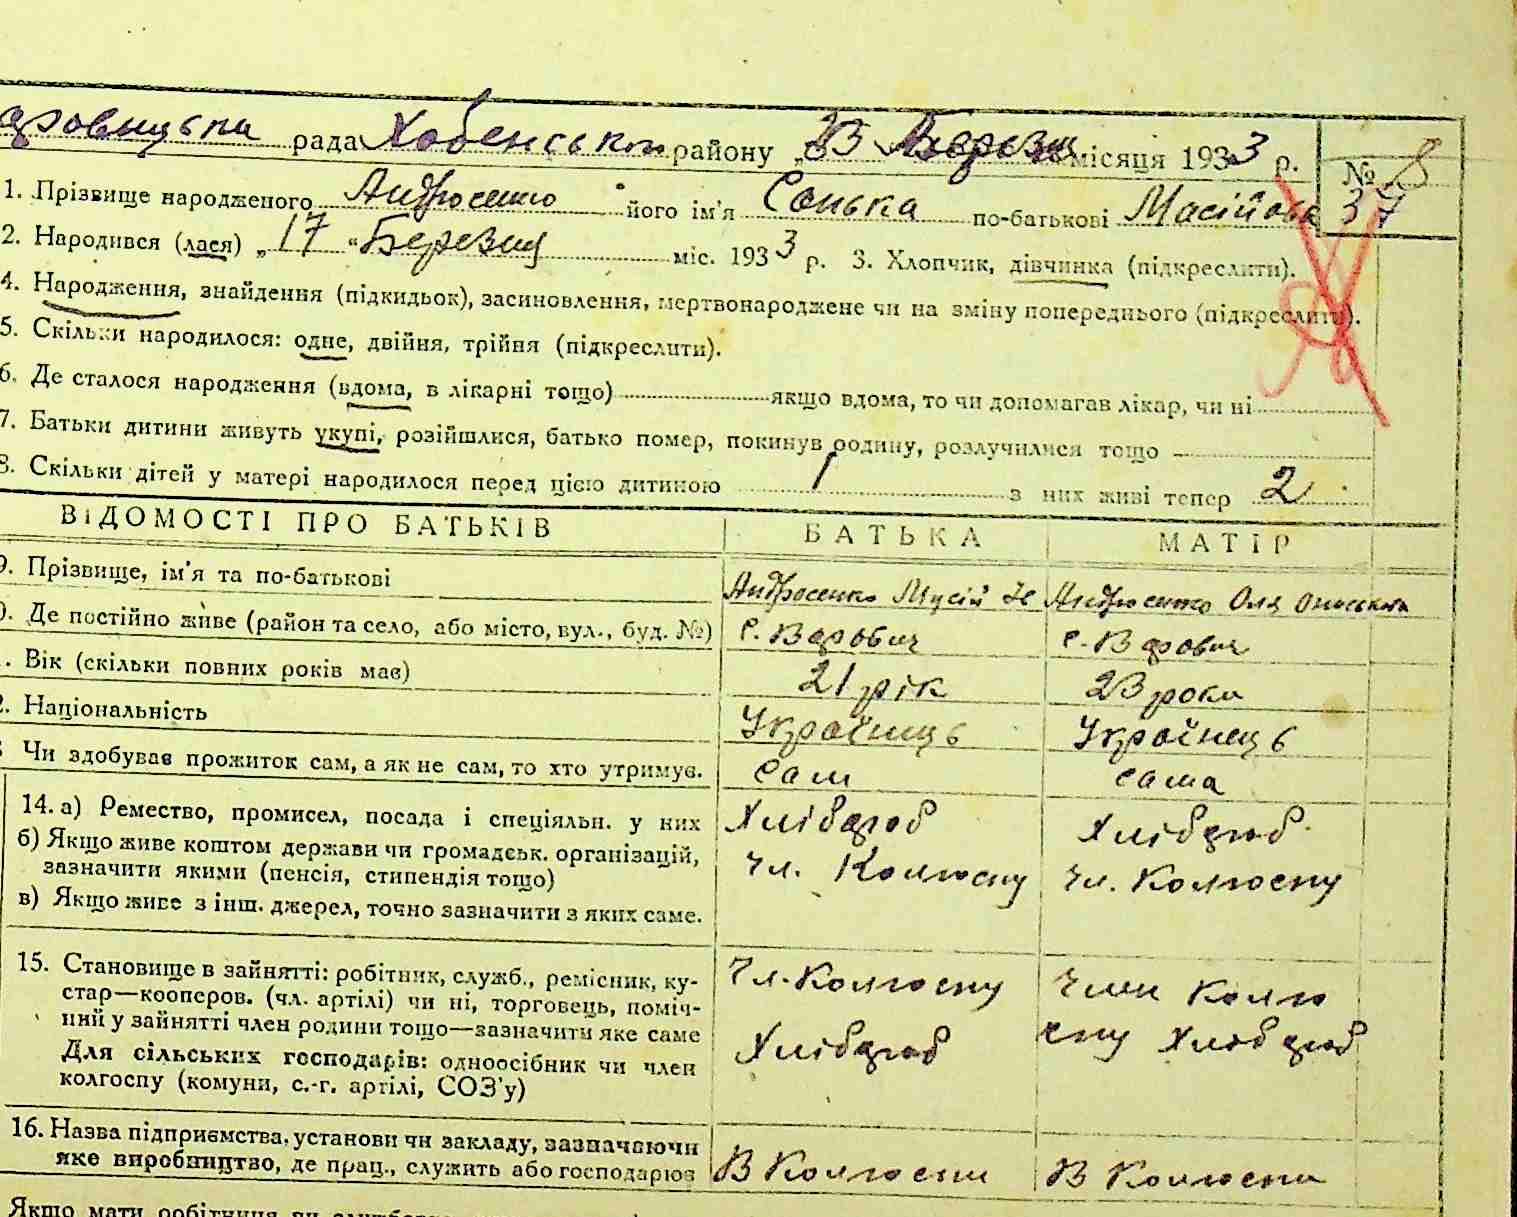 рада Хабенського району „23 Березня місяця 1933 р. № 8
1. Прізвище народженого Андросенко його ім'я Сонька по-батькові Масійовна 37
2. Народився (лася) „17“ Березня міс. 1933 р. 3. Хлопчик, дівчинка (підкреслити).
4. Народження, знайдення (підкидьок), засиновлення, мертвонароджене чи на зміну попереднього (підкреслити).
5. Скільки народилося: одне, двійня, трійня (підкреслити).
6. Де сталося народження (вдома, в лікарні тощо) якщо вдома, то чи допомагав лікар, чи ні
7. Батьки дитини живуть укупі, розійшлися, батько помер, покинув родину, розлучилися тощо
8. Скільки дітей у матері народилося перед цією дитиною 1 з них живі тепер 2
ВІДОМОСТІ ПРО БАТЬКІВ БАТЬКА МАТІР
9. Прізвище, ім'я та по-батькові Андросенко Мусій Андросенко Оля
0. Де постійно живе (район та село, або місто, вул., буд. №) с. Варович с. Варович
. Вік (скільки повних років має) 21 рік 23 роки
2. Національність Українець Українець
Чи здобував прожиток сам, а як не сам, то хто утримує. сам сама
14. а) Ремество, промисел, посада і спеціяльн. у них Хлібороб Хлібороб
б) Якщо живе коштом держави чи громадськ. організацій, чл. Колгоспу чл. Колгоспу
зазначити якими (пенсія, стипендія тощо)
в) Якщо живе з інш. джерел, точно зазначити з яких саме.
15. Становище в зайнятті: робітник, служб., ремісник, ку- Чл. Колгоспу Член Колго
стар—кооперов. (чл. артілі) чи ні, торговець, поміч-
ний у зайнятті член родини тощо—зазначити яке саме Хлібороб спу Хлібороб
Для сільських господарів: одноосібник чи член
колгоспу (комуни, с.-г. артілі, СОЗ'у)
16. Назва підприємства, установи чи закладу, зазначаючи
яке виробництво, де прац., служить або господарює В Колгоспи В Колгоспи
Якщо мати робітниця